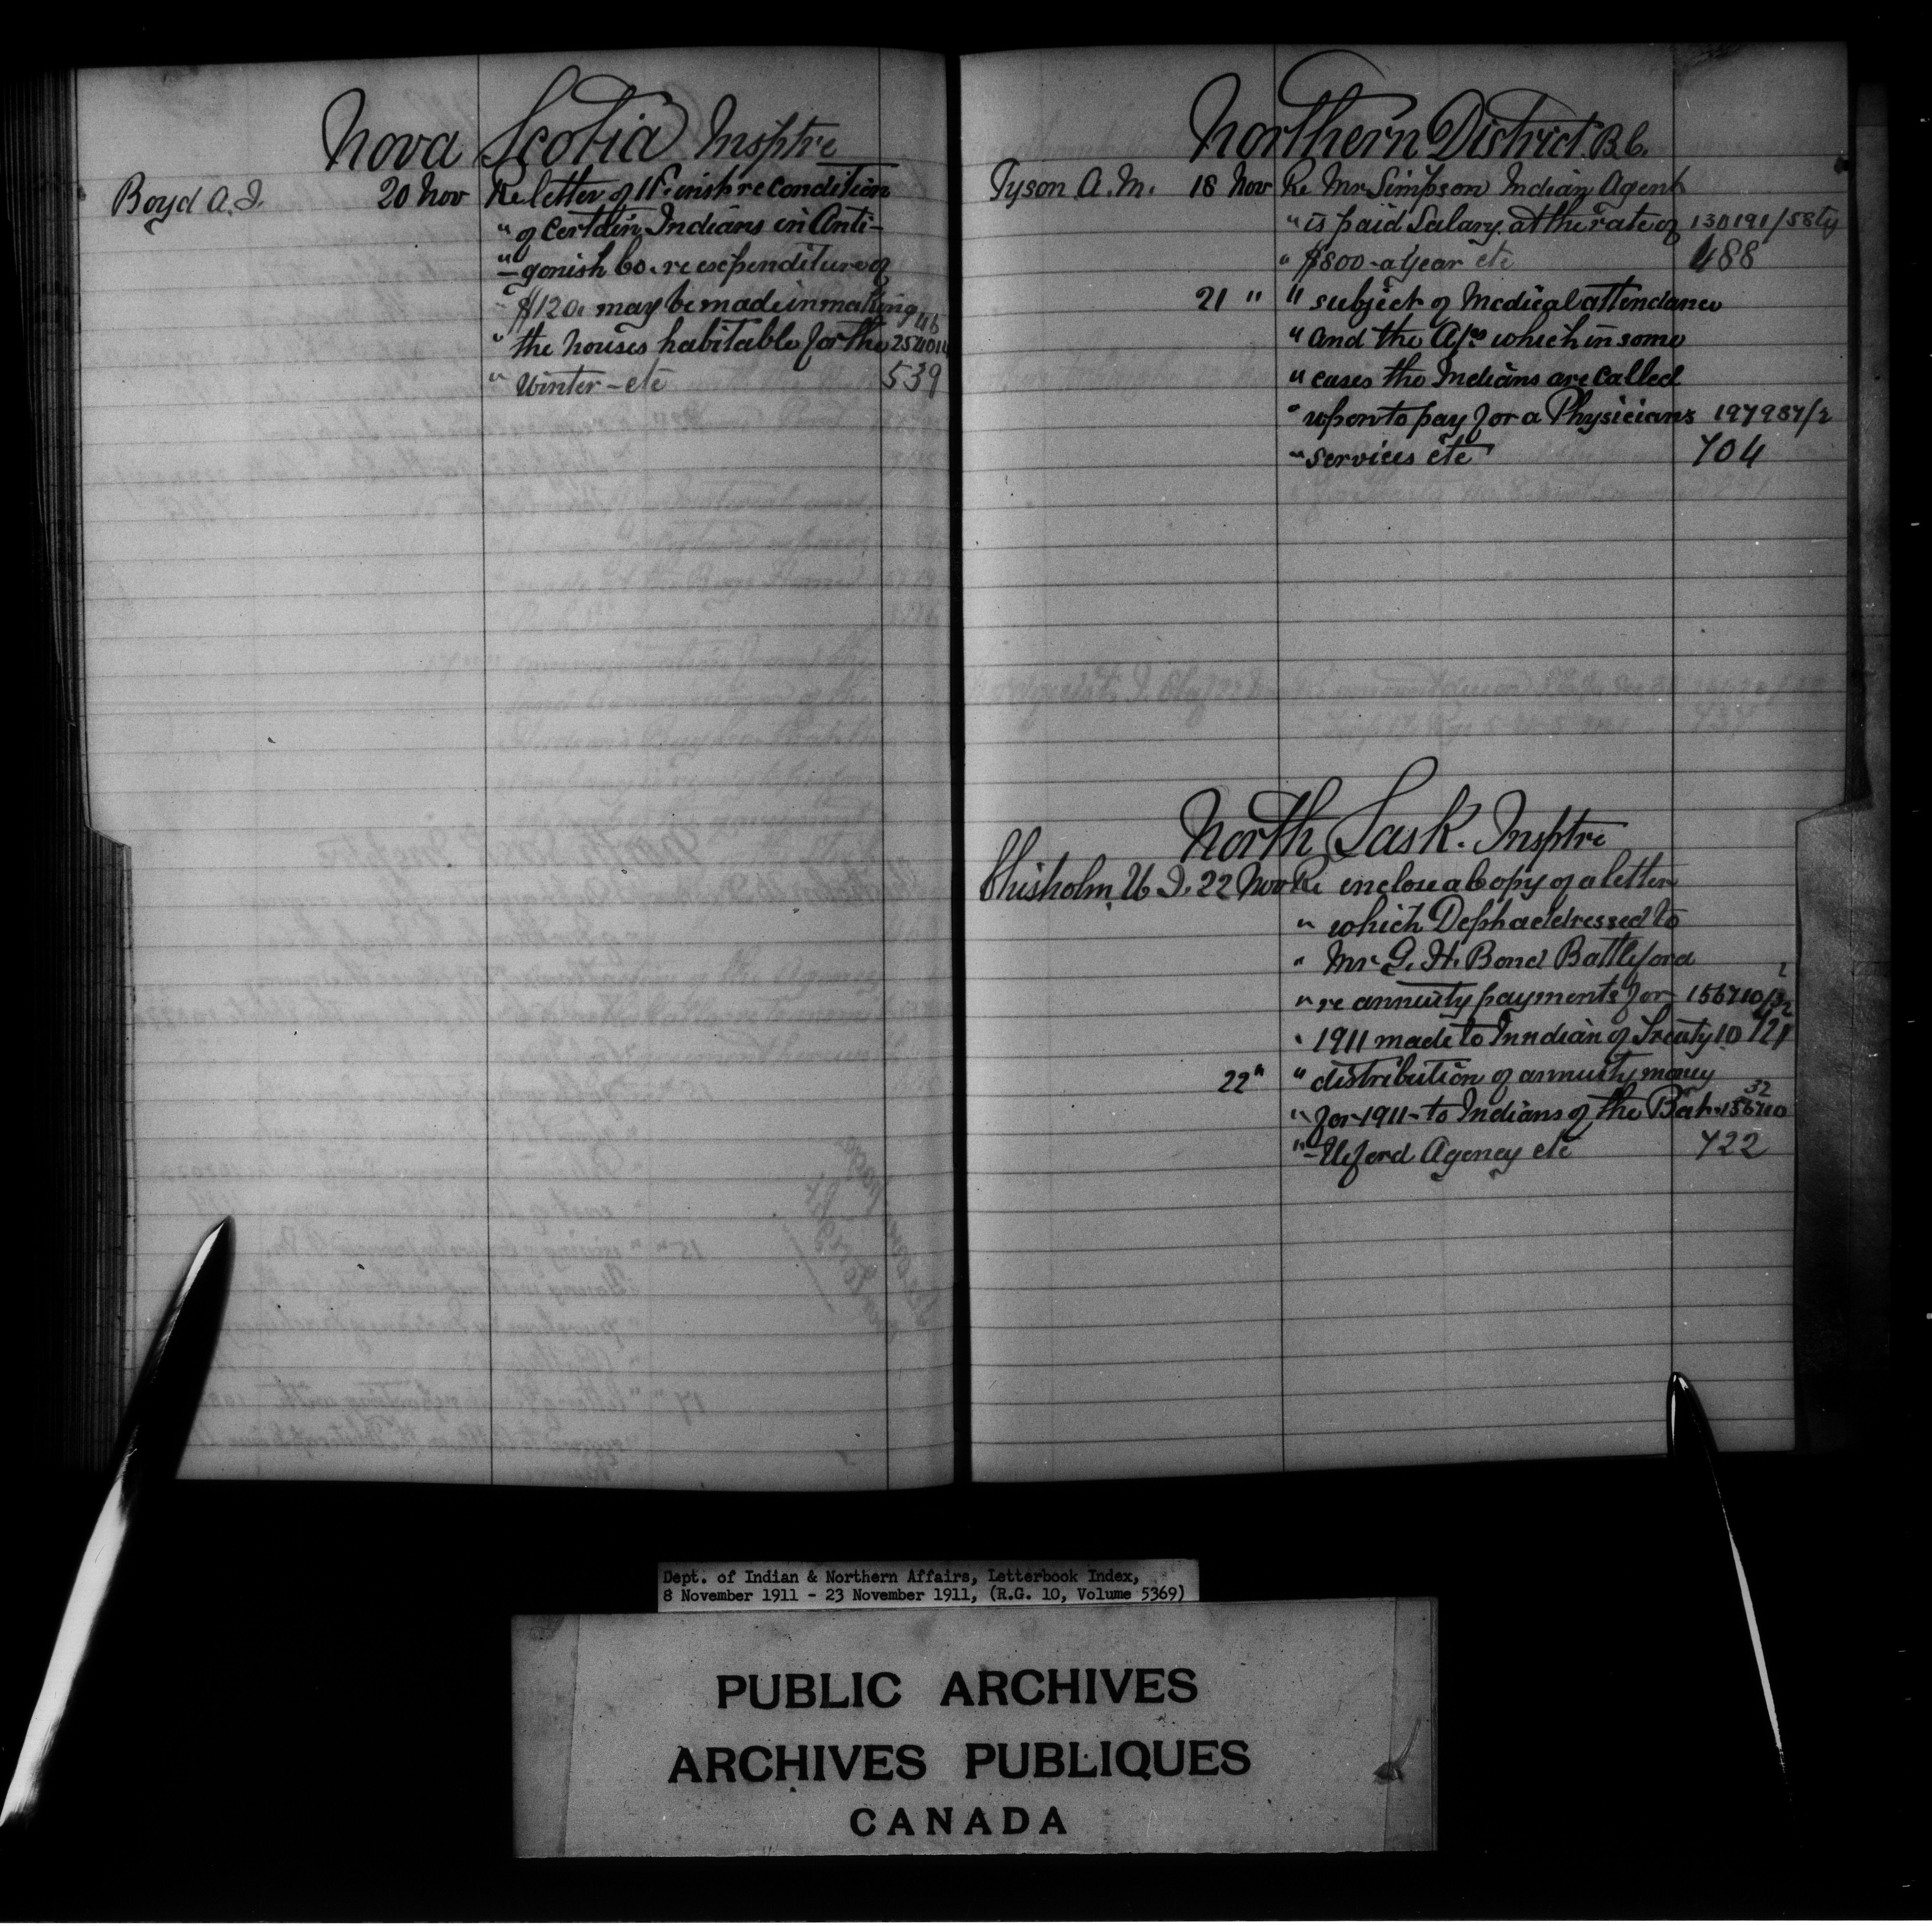 Nova Scotia Insptre
Boyd A.J. 20 Nov Re letter of 11th inst re condition
" of certain Indians in Anti-
" -gonish Co. re expenditure of
" $120. may be made in making
" the houses habitable for the 254011 46
" Winter - etc 539
Northern District B.C.
Tyson A.M. 18 Nov Re Mr Simpson Indian Agent
" is paid Salary at the rate of 130191/58
" $800 - a year etc 488
21 " " subject of Medical attendance
" and the which in some
" cases the Indians are called
" upon to pay for a Physicians 197987/2
" services etc 704
North Sask. Insptre
Chisholm W.J. 22 Nov Re enclose a Copy of a letter
" which Dept addressed to
" Mr G. H. Bond Battleford
" re annuity payments for 156710/32
" 1911 made to Inndian of Treaty 10 721
22 " " distribution of annuity money
" for 1911 - to Indians of the Bat- 156710 32
" -tleford Agency etc 722
Dept. of Indian & Northern Affairs, Letterbook Index,
8 November 1911 - 23 November 1911, (R.G. 10, Volume 5369)
PUBLIC ARCHIVES
ARCHIVES PUBLIQUES
CANADA